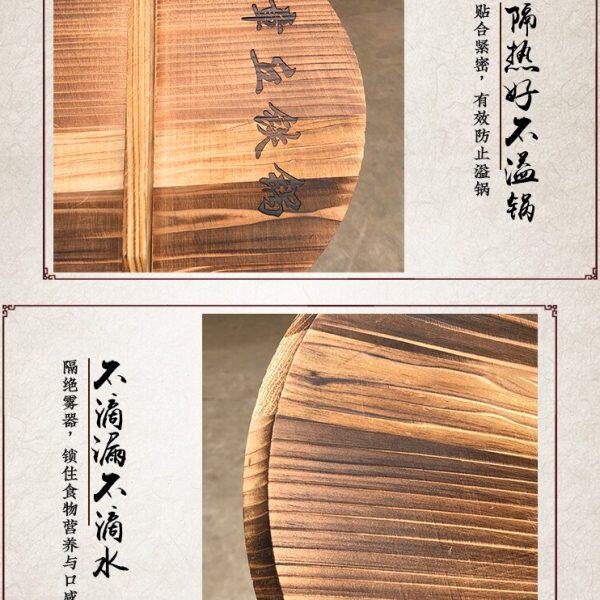 隔热好不溢锅
贴合紧密，有效防止溢锅
章丘铁锅
不滴漏不滴水
隔绝雾器，锁住食物营养与口感